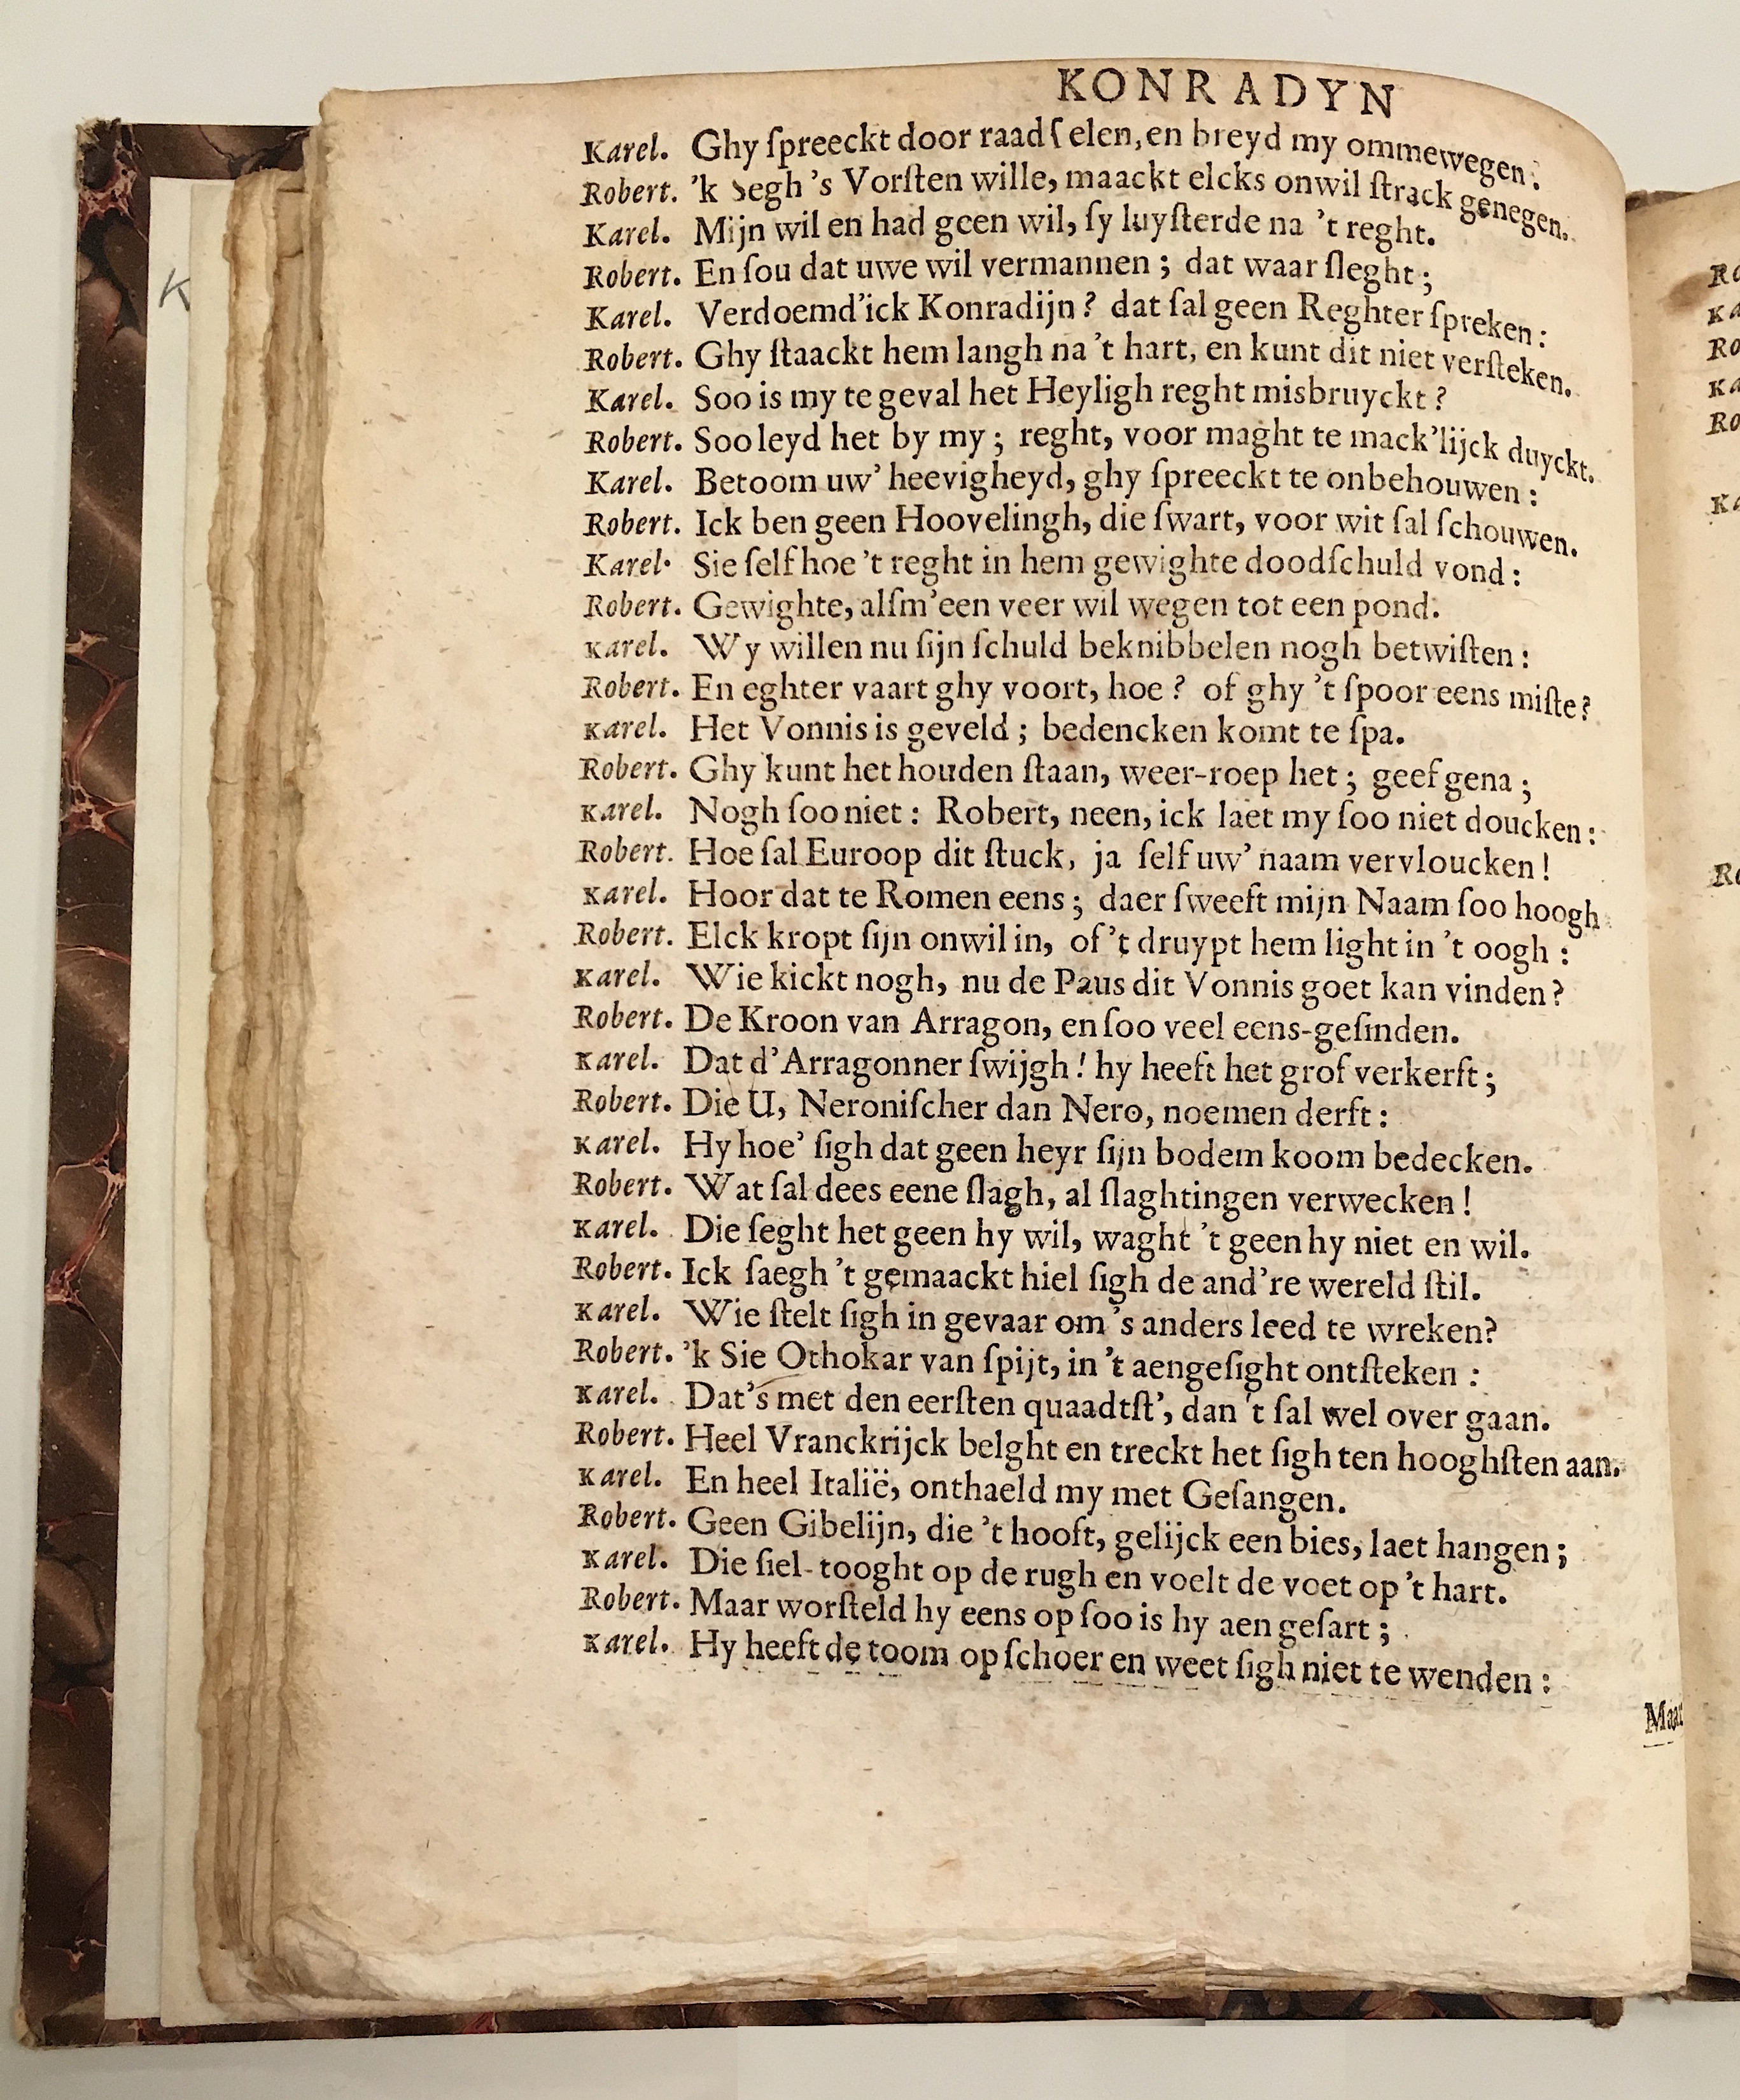 K
KONRADYN
Karel. Ghy ſpreeckt door raadſelen, en breyd my ommewegen:
Robert. 'k Segh 's Vorſten wille, maackt elcks onwil ſtrack genegen.
Karel. Mijn wil en had geen wil, ſy luyſterde na 't reght.
Robert. En ſou dat uwe wil vermannen; dat waar ſleght;
Karel. Verdoemd'ick Konradijn? dat ſal geen Reghter ſpreken:
Robert. Ghy ſtaackt hem langh na 't hart, en kunt dit niet verſteken.
Karel. Soo is my te geval het Heyligh reght misbruyckt?
Robert. Soo leyd het by my; reght, voor maght te mack'lijck duyckt.
Karel. Betoom uw' heevigheyd, ghy ſpreeckt te onbehouwen:
Robert. Ick ben geen Hoovelingh, die ſwart, voor wit ſal ſchouwen.
Karel. Sie ſelf hoe 't reght in hem gewighte doodſchuld vond:
Robert. Gewighte, alſm'een veer wil wegen tot een pond.
Karel. Wy willen nu ſijn ſchuld beknibbelen nogh betwiſten:
Robert. En eghter vaart ghy voort, hoe? of ghy 't ſpoor eens miſte?
Karel. Het Vonnis is geveld; bedencken komt te ſpa.
Robert. Ghy kunt het houden ſtaan, weer-roep het; geef gena;
Karel. Nogh ſoo niet: Robert, neen, ick laet my ſoo niet doucken:
Robert. Hoe ſal Euroop dit ſtuck, ja ſelf uw' naam vervloucken!
Karel. Hoor dat te Romen eens; daer ſweeft mijn Naam ſoo hoogh
Robert. Elck kropt ſijn onwil in, of 't druypt hem light in 't oogh:
Karel. Wie kickt nogh, nu de Paus dit Vonnis goet kan vinden?
Robert. De Kroon van Arragon, en ſoo veel eens-geſinden.
Karel. Dat d'Arragonner ſwijgh! hy heeft het grof verkerft;
Robert. Die U, Neroniſcher dan Nero, noemen derft:
Karel. Hy hoe' ſigh dat geen heyr ſijn bodem koom bedecken.
Robert. Wat ſal dees eene ſlagh, al ſlaghtingen verwecken!
Karel. Die ſeght het geen hy wil, waght 't geen hy niet en wil.
Robert. Ick ſaegh 't gemaackt hiel ſigh de and're wereld ſtil.
Karel. Wie ſtelt ſigh in gevaar om 's anders leed te wreken?
Robert. 'k Sie Othokar van ſpijt, in 't aengeſight ontſteken:
Karel. Dat's met den eerſten quaadtſt', dan 't ſal wel over gaan.
Robert. Heel Vranckrijck belght en treckt het ſigh ten hooghſten aan.
Karel. En heel Italië, onthaeld my met Geſangen.
Robert. Geen Gibelijn, die 't hooft, gelijck een bies, laet hangen;
Karel. Die ſiel-tooght op de rugh en voelt de voet op 't hart.
Robert. Maar worſteld hy eens op ſoo is hy aen geſart;
Karel. Hy heeft de toom op ſchoer en weet ſigh niet te wenden:
Maar